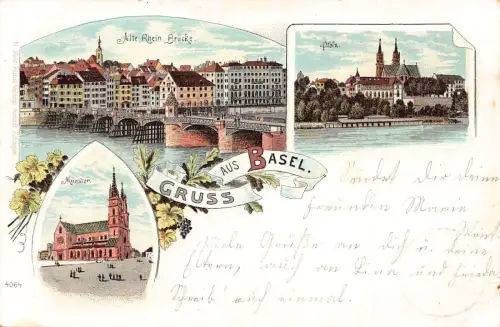 Alte Rhein Brücke.
Pfalz.
Münster.
GRUSS AUS BASEL.
4064
Sendet dir deine
Freundin Marie
Viele Grüße an dich u. deine
Eltern, auch an Lina und Frieda
Schreib' auch einmal.